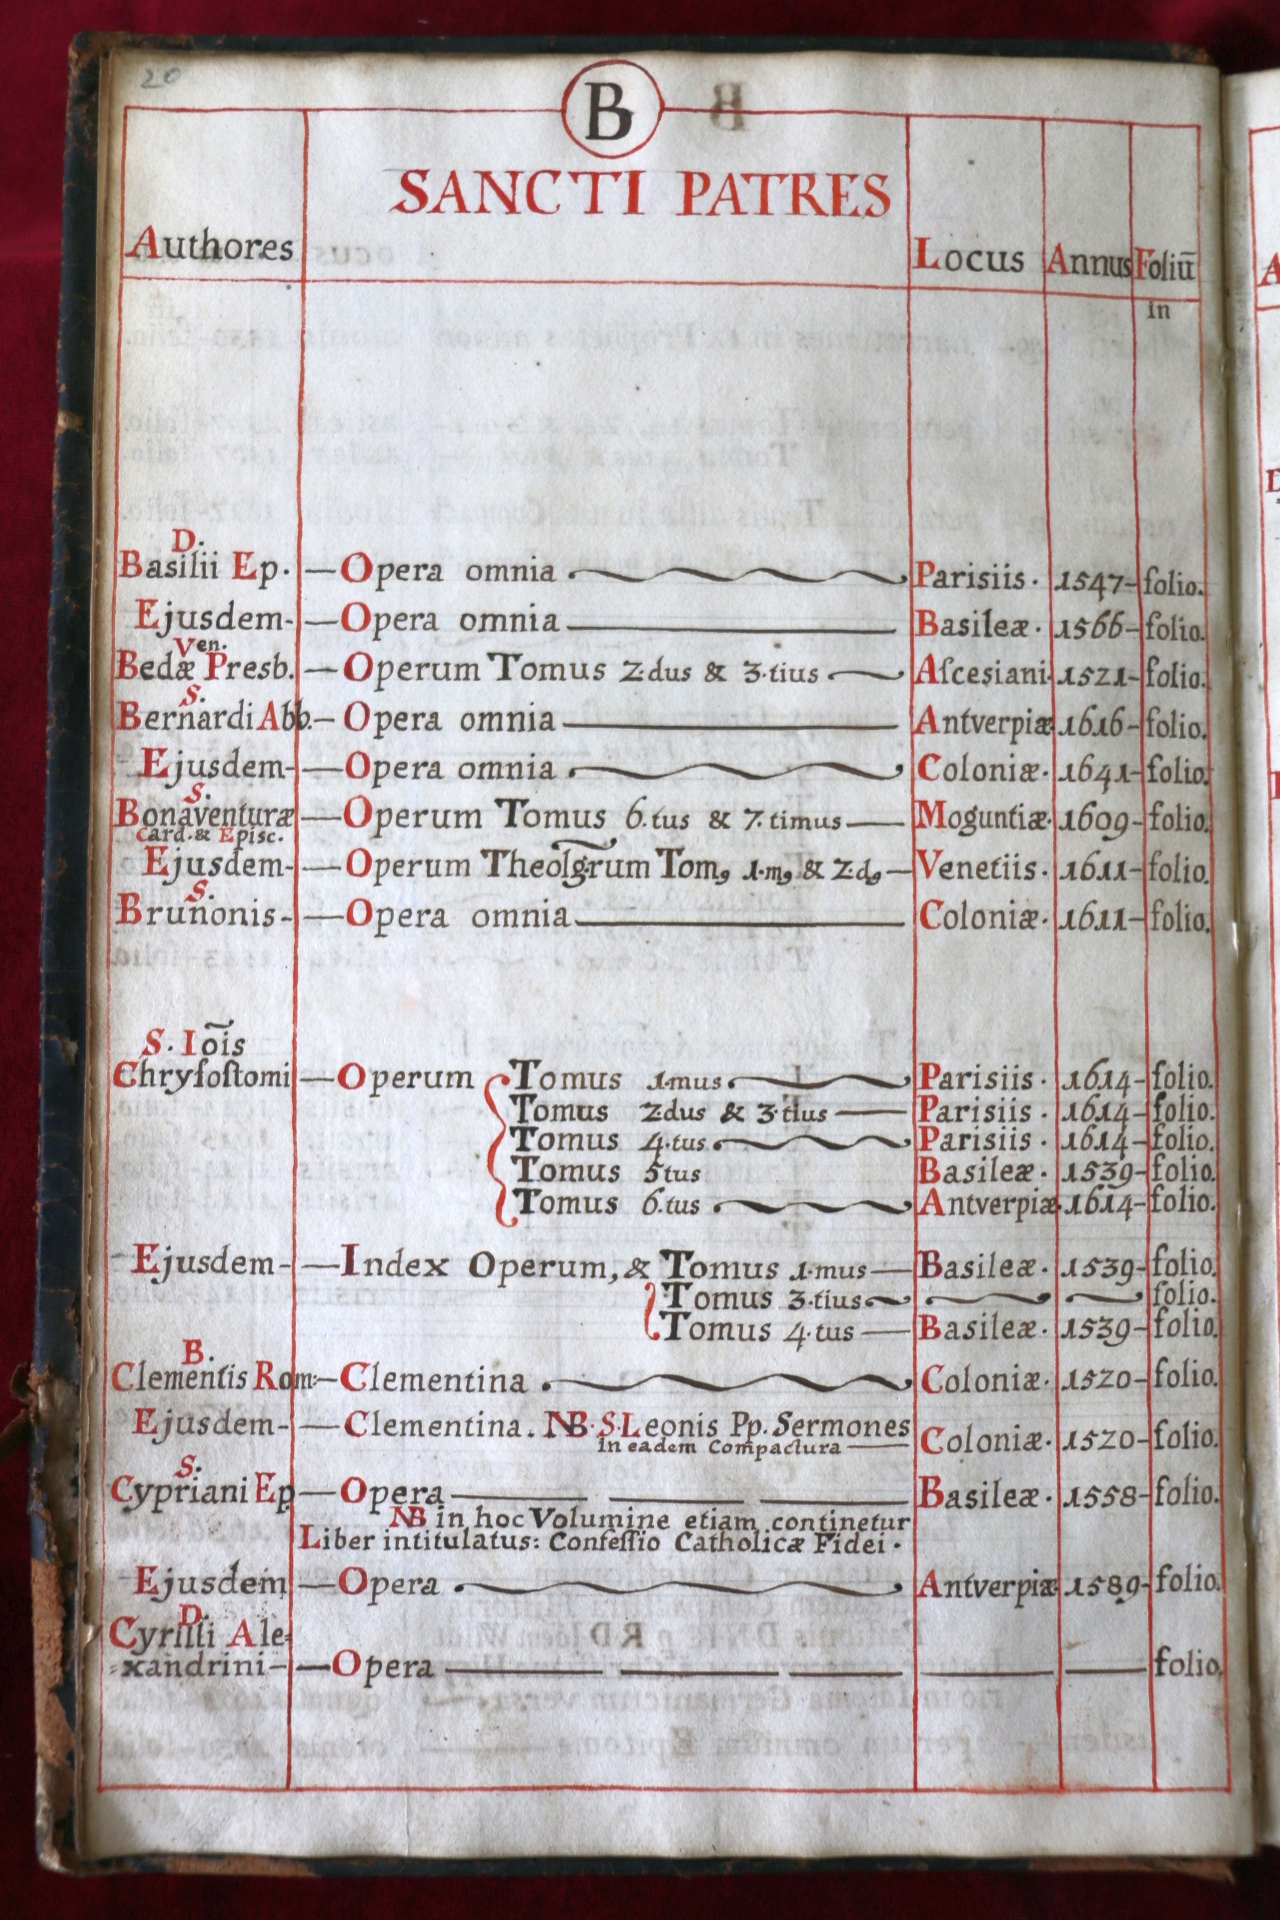 20
B
SANCTI PATRES
Authores Locus Annus Foliū
in
D.
Basilii Ep. — Opera omnia Parisiis. 1547 - folio.
Ejusdem - — Opera omnia Basileæ. 1566 - folio.
Ven.
Bedæ Presb. — Operum Tomus 2.dus & 3.tius Aſcesiani. 1521 - folio.
S.
Bernardi Abb. — Opera omnia Antverpiæ 1616 - folio.
Ejusdem - — Opera omnia Coloniæ. 1641 - folio.
S.
Bonaventuræ — Operum Tomus 6.tus & 7.timus — Moguntiæ. 1609 - folio.
Card. & Episc.
Ejusdem - — Operum Theolg̃rum Tom9 1.m9 & 2.d9 — Venetiis. 1611 - folio.
S.
Brunonis - — Opera omnia Coloniæ. 1611 - folio.
S. Iõis
Chryſoſtomi — Operum Tomus 1.mus Parisiis. 1614 - folio.
Tomus 2dus & 3.tius — Parisiis. 1614 - folio.
Tomus 4.tus Parisiis. 1614 - folio.
Tomus 5tus Basileæ. 1539 - folio.
Tomus 6.tus Antverpiæ 1614 - folio.
Ejusdem - — Index Operum, & Tomus 1.mus — Basileæ. 1539 - folio.
Tomus 3.tius folio.
Tomus 4.tus — Basileæ. 1539 - folio.
B.
Clementis Rom: — Clementina. Coloniæ. 1520 - folio.
Ejusdem - — Clementina. NB. S. Leonis Pp. Sermones
in eadem Compactura — Coloniæ. 1520 - folio.
S.
Cypriani Ep — Opera Basileæ. 1558 - folio.
NB in hoc Volumine etiam continetur
Liber intitulatus: Confeſſio Catholicæ Fidei.
Ejusdem — Opera Antverpiæ 1589 - folio.
D.
Cyrilli Ale=
=xandrini - — Opera folio.